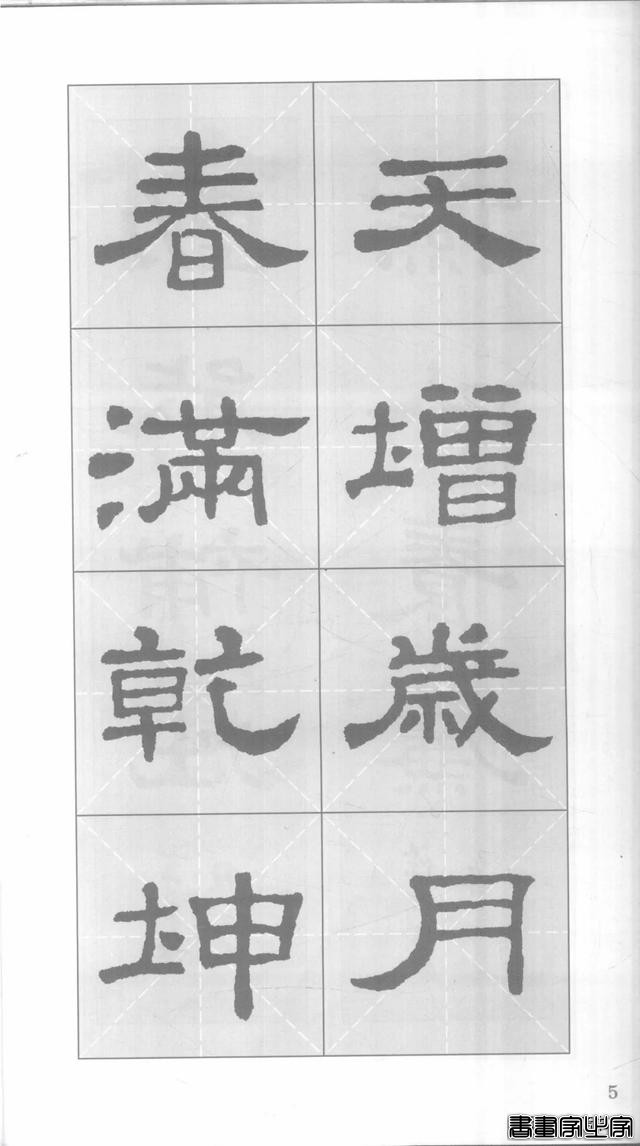 天增歲月
春滿乾坤
5
書畫家必字